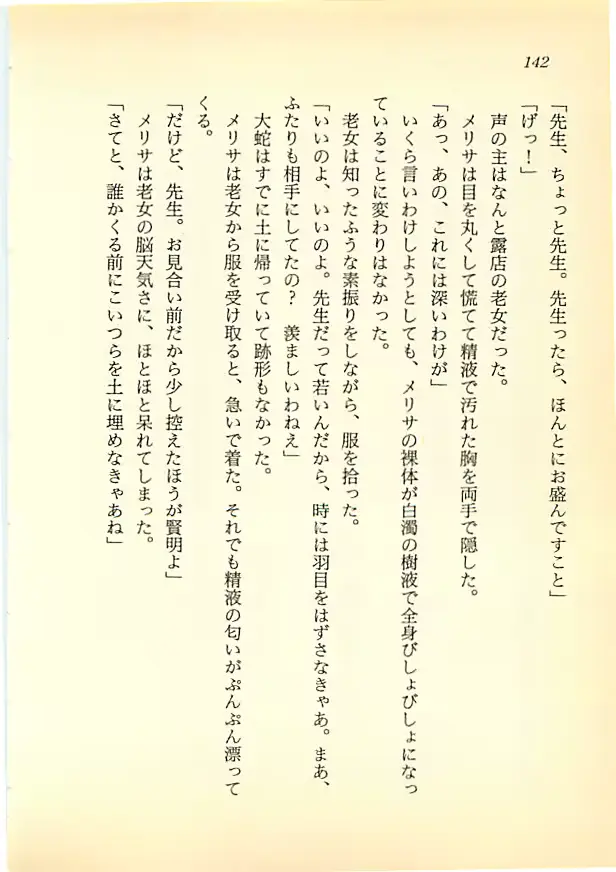 142
「先生、ちょっと先生。先生ったら、ほんとにお盛んですこと」
「げっ！」
声の主はなんと露店の老女だった。
メリサは目を丸くして慌てて精液で汚れた胸を両手で隠した。
「あっ、あの、これには深いわけが」
いくら言いわけしようとしても、メリサの裸体が白濁の樹液で全身びしょびしょになっ
ていることに変わりはなかった。
老女は知ったふうな素振りをしながら、服を拾った。
「いいのよ、いいのよ。先生だって若いんだから、時には羽目をはずさなきゃあ。まあ、
ふたりも相手にしてたの？　羨ましいわねえ」
大蛇はすでに土に帰っていて跡形もなかった。
メリサは老女から服を受け取ると、急いで着た。それでも精液の匂いがぷんぷん漂って
くる。
「だけど、先生。お見合い前だから少し控えたほうが賢明よ」
メリサは老女の脳天気さに、ほとほと呆れてしまった。
「さてと、誰かくる前にこいつらを土に埋めなきゃあね」